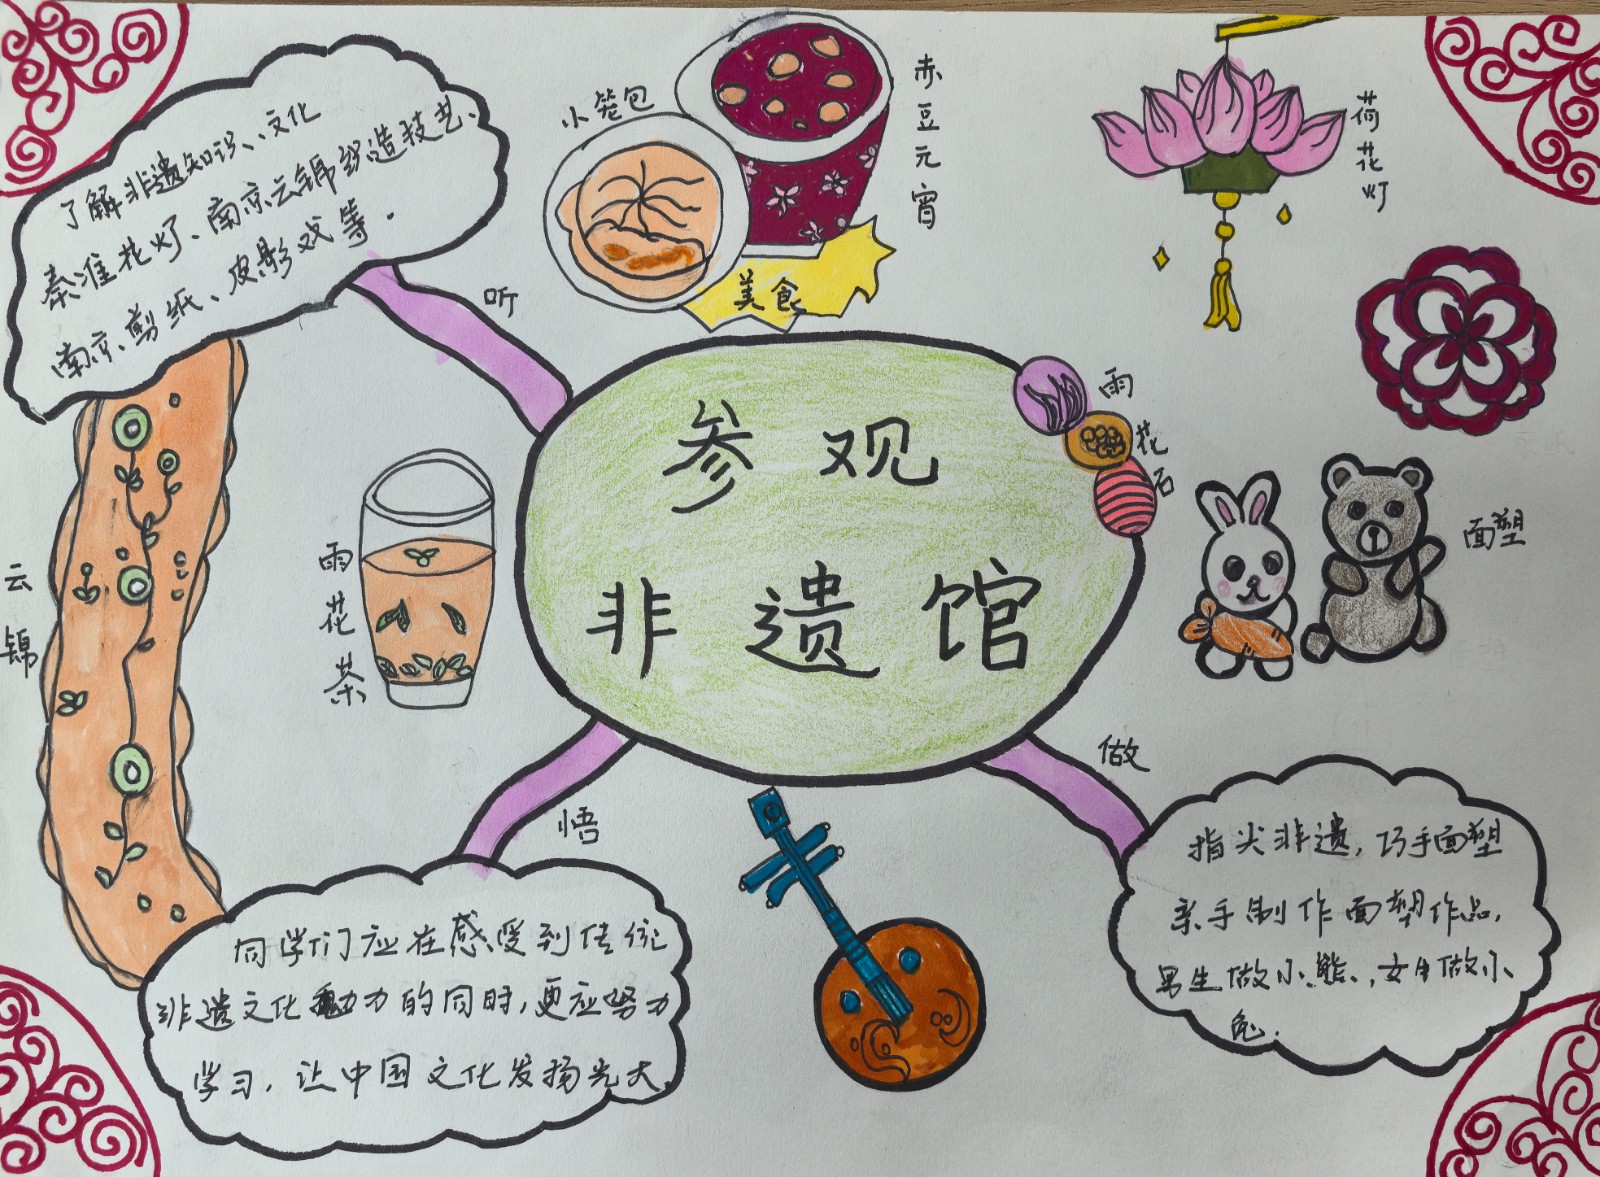 了解非遗知识、文化
秦淮花灯、南京云锦织造技艺、
南京剪纸、皮影戏等.
听
小笼包
赤豆元宵
美食
荷花灯
参观
非遗馆
雨花石
面塑
雨花茶
云锦
悟
做
同学们应在感受到传统
非遗文化魅力的同时,更应努力
学习,让中国文化发扬光大.
指尖非遗,巧手面塑
亲手制作面塑作品,
男生做小熊,女生做小
兔.